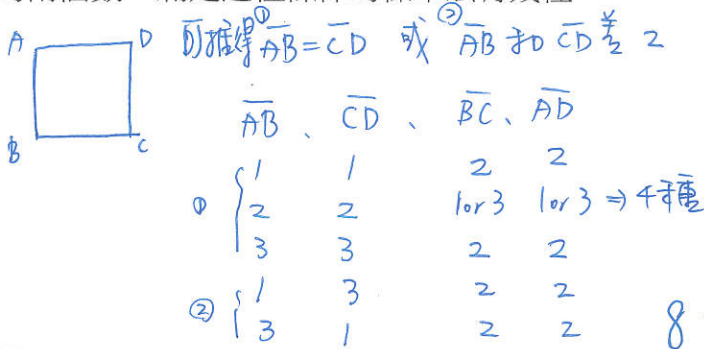 A D 可推得 ① AB = CD 或 ② AB 和 CD 差 2
B C
AB 、 CD 、 BC 、 AD
① 1 1 2 2
2 2 1or3 1or3 ⇒ 4種
3 3 2 2
② 1 3 2 2
3 1 2 2 8